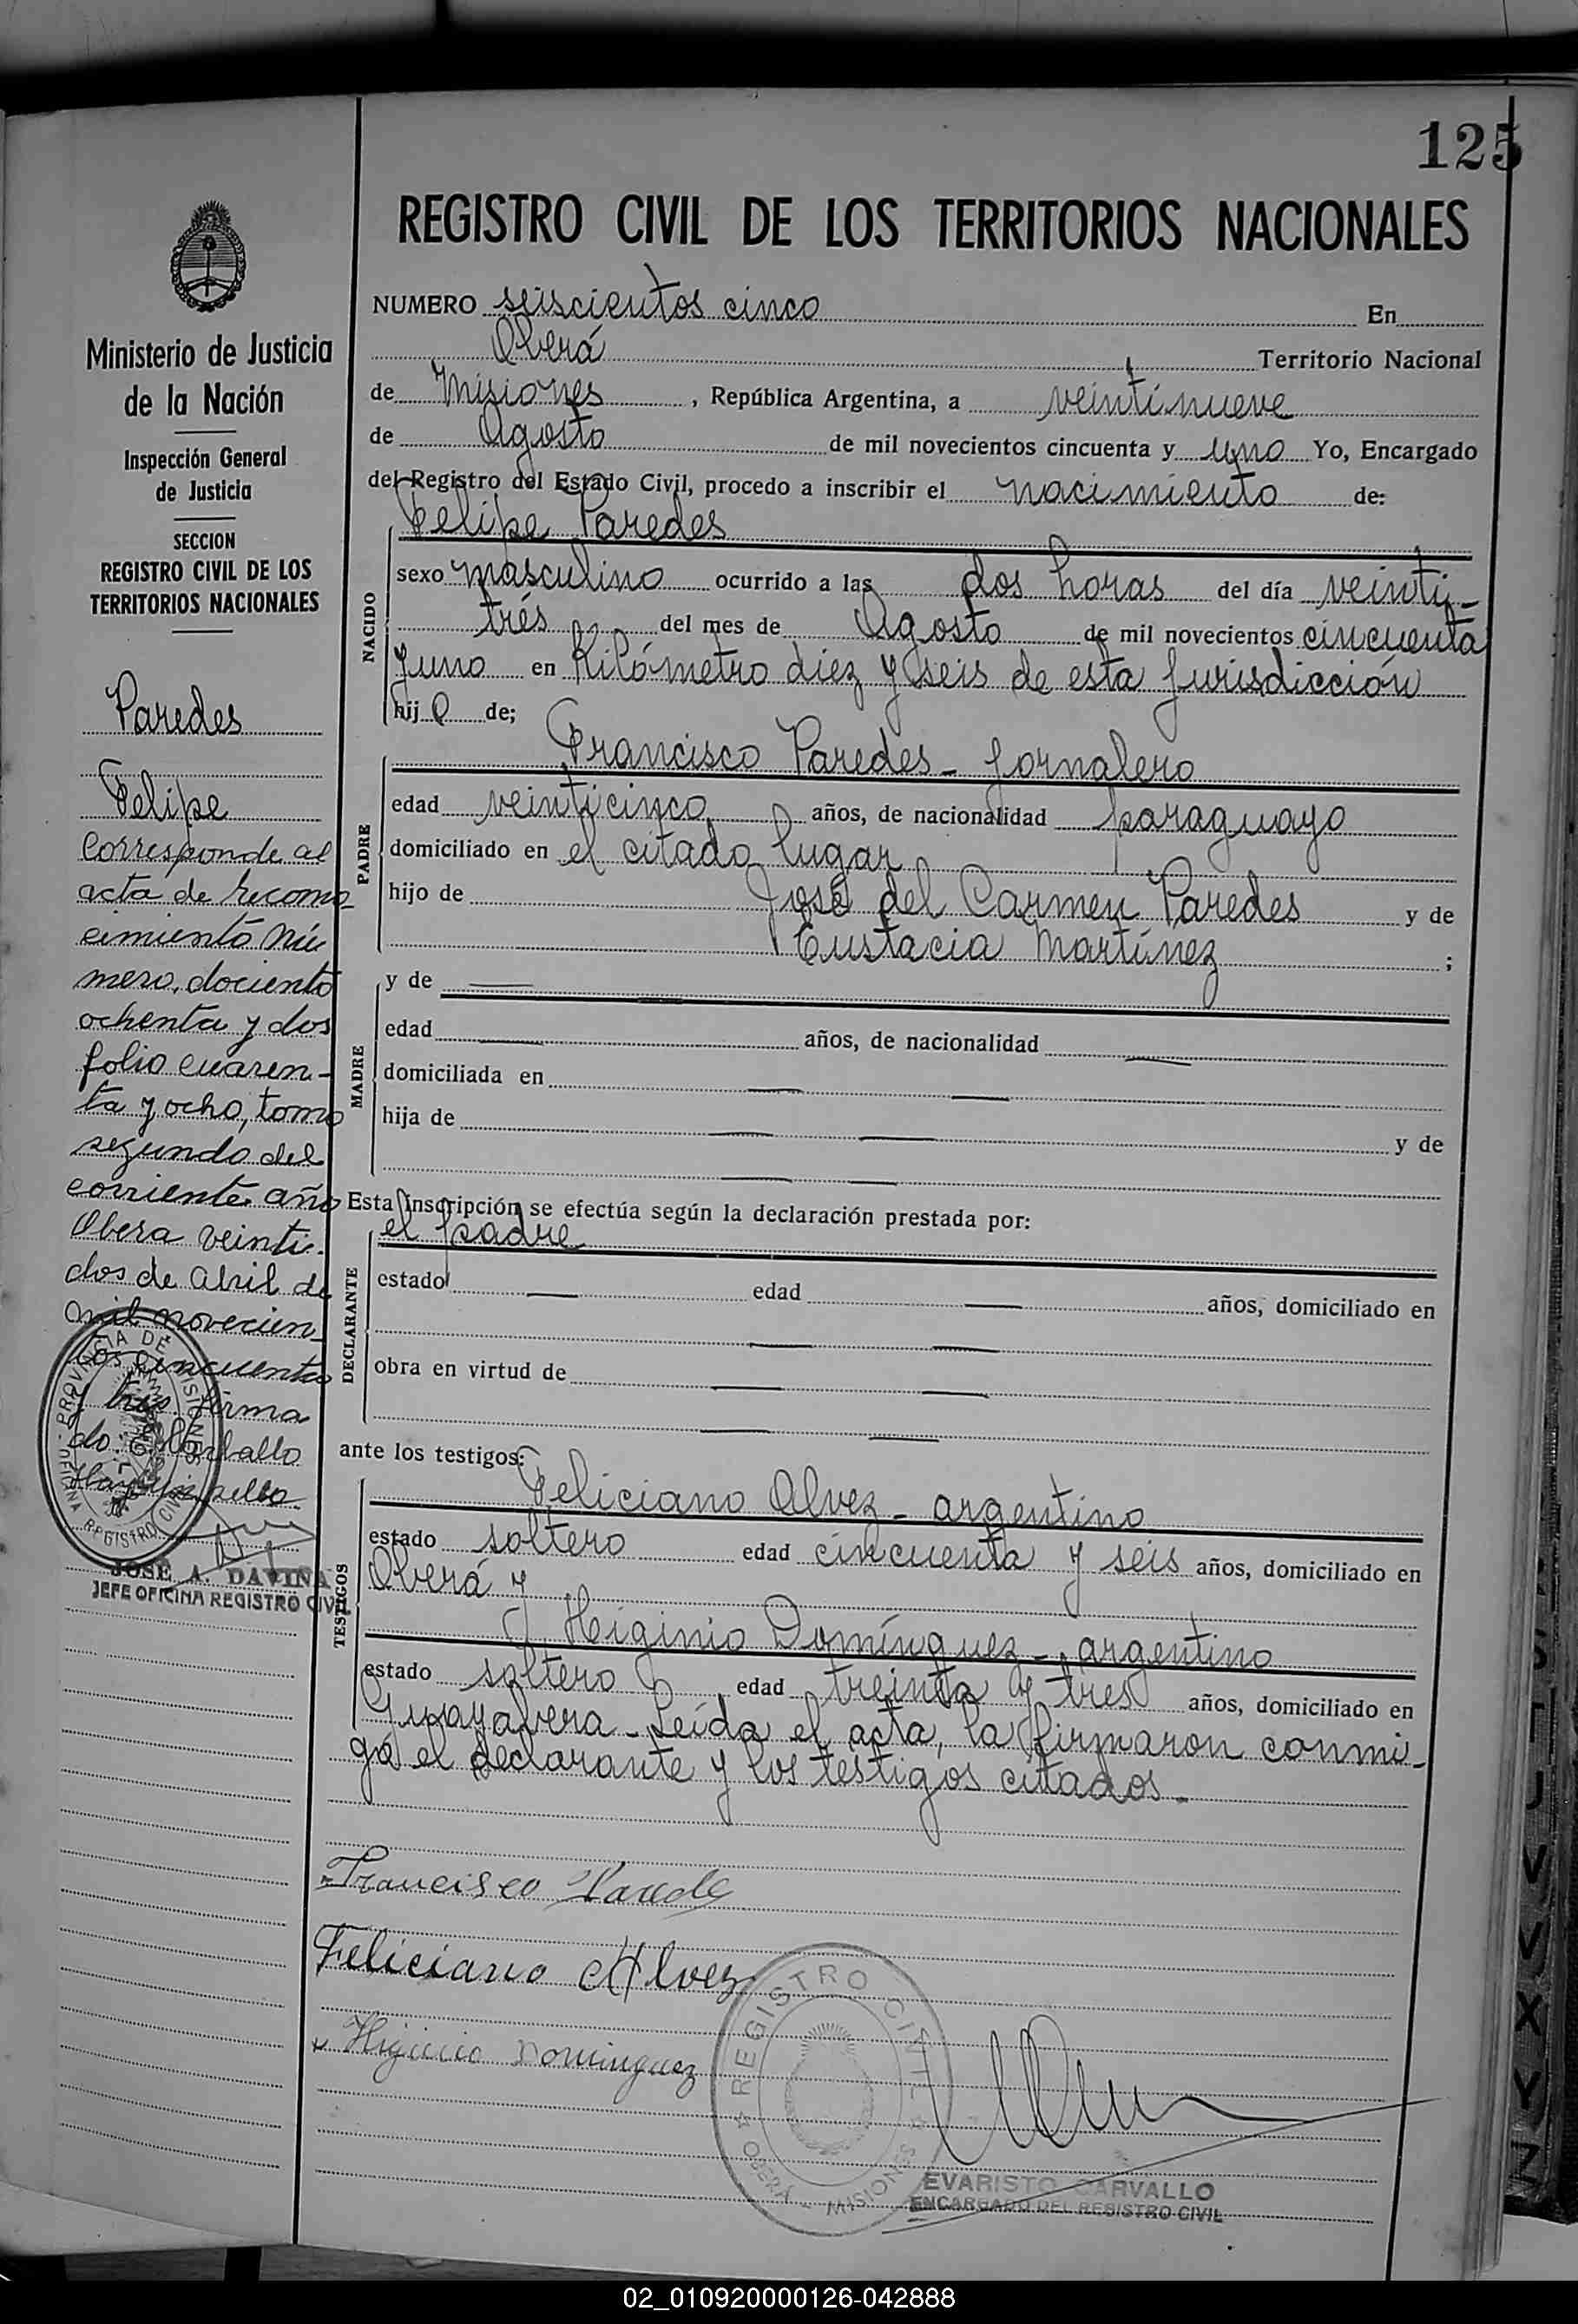 125
REGISTRO CIVIL DE LOS TERRITORIOS NACIONALES
Ministerio de Justicia
de la Nación
Inspección General
de Justicia
SECCION
REGISTRO CIVIL DE LOS
TERRITORIOS NACIONALES
Paredes
Felipe
Corresponde al
acta de recono-
cimiento Nú
mero, dociento
ochenta y dos
folio cuaren-
ta y ocho, tomo
segundo del
corriente año
Obera veinti-
dos de abril de
mil novecien-
tos cincuenta
y tres firma
do: E. Carvallo
PROVINCIA DE MISIONES
OFICINA REGISTRO CIVIL
JOSE A. DAVIÑA
JEFE OFICINA REGISTRO CIVIL
NUMERO seiscientos cinco En
Oberá Territorio Nacional
de Misiones, República Argentina, a veintinueve
de Agosto de mil novecientos cincuenta y uno Yo, Encargado
del Registro del Estado Civil, procedo a inscribir el nacimiento de:
NACIDO
Felipe Paredes
sexo masculino ocurrido a las dos horas del día veinti-
trés del mes de Agosto de mil novecientos cincuenta
y uno en Kilómetro diez y seis de esta jurisdicción
hijo de;
PADRE
Francisco Paredes - jornalero
edad veinticinco años, de nacionalidad paraguayo
domiciliado en el citado lugar
hijo de José del Carmen Paredes y de
Eustacia Martínez ;
MADRE
y de
edad años, de nacionalidad
domiciliada en
hija de y de
Esta inscripción se efectúa según la declaración prestada por:
DECLARANTE
el padre
estado edad años, domiciliado en
obra en virtud de
ante los testigos:
TESTIGOS
Feliciano Alvez - argentino
estado soltero edad cincuenta y seis años, domiciliado en
Oberá y
Higinio Domínguez - argentino
estado soltero, edad treinta y tres años, domiciliado en
Guayabera - Leída el acta, la firmaron conmi-
go el declarante y los testigos citados.-
Francisco Parede
Feliciano Alvez
Higinio Dominguez
REGISTRO CIVIL
OBERA - MISIONES
EVARISTO CARVALLO
ENCARGADO DEL REGISTRO CIVIL
V
V
X
Y
Z
02_010920000126-042888